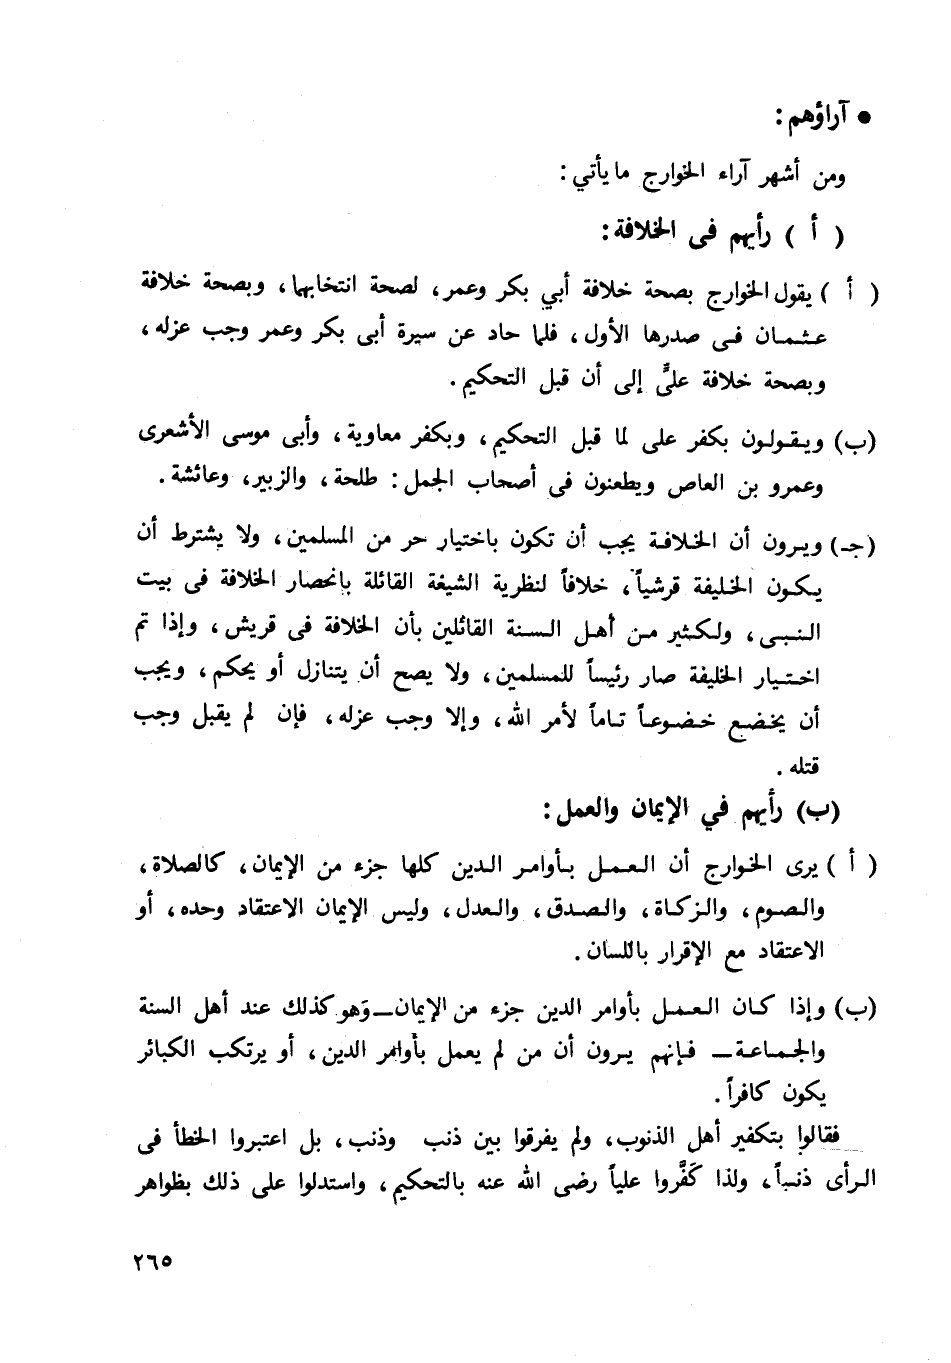 • آراؤهم :
ومن أشهر آراء الخوارج ما يأتي :
( أ ) رأيهم فى الخلافة :
( أ ) يقول الخوارج بصحة خلافة أبي بكر وعمر، لصحة انتخابهما، وبصحة خلافة
عثمان فى صدرها الأول، فلما حاد عن سيرة أبى بكر وعمر وجب عزله،
وبصحة خلافة علىٍّ إلى أن قبل التحكيم .
(ب) ويقولون بكفر على لما قبل التحكيم، وبكفر معاوية، وأبى موسى الأشعرى
وعمرو بن العاص ويطعنون فى أصحاب الجمل : طلحة، والزبير، وعائشة .
(جـ) ويرون أن الخلافة يجب أن تكون باختيار حر من المسلمين، ولا يشترط أن
يكون الخليفة قرشياً، خلافاً لنظرية الشيعة القائلة بانحصار الخلافة فى بيت
النبى، ولكثير من أهل السنة القائلين بأن الخلافة فى قريش، وإذا تم
اختيار الخليفة صار رئيساً للمسلمين، ولا يصح أن يتنازل أو يحكم، ويجب
أن يخضع خضوعاً تاماً لأمر الله، وإلا وجب عزله، فإن لم يقبل وجب
قتله .
(ب) رأيهم في الإيمان والعمل :
( أ ) يرى الخوارج أن العمل بأوامر الدين كلها جزء من الإيمان، كالصلاة،
والصوم، والزكاة، والصدق، والعدل، وليس الإيمان الاعتقاد وحده، أو
الاعتقاد مع الإقرار باللسان .
(ب) وإذا كان العمل بأوامر الدين جزء من الإيمان ــ وهو كذلك عند أهل السنة
والجماعة ــ فإنهم يرون أن من لم يعمل بأوامر الدين، أو يرتكب الكبائر
يكون كافراً .
فقالوا بتكفير أهل الذنوب، ولم يفرقوا بين ذنب وذنب، بل اعتبروا الخطأ فى
الرأى ذنباً، ولذا كَفَّروا علياً رضى الله عنه بالتحكيم، واستدلوا على ذلك بظواهر
٢٦٥